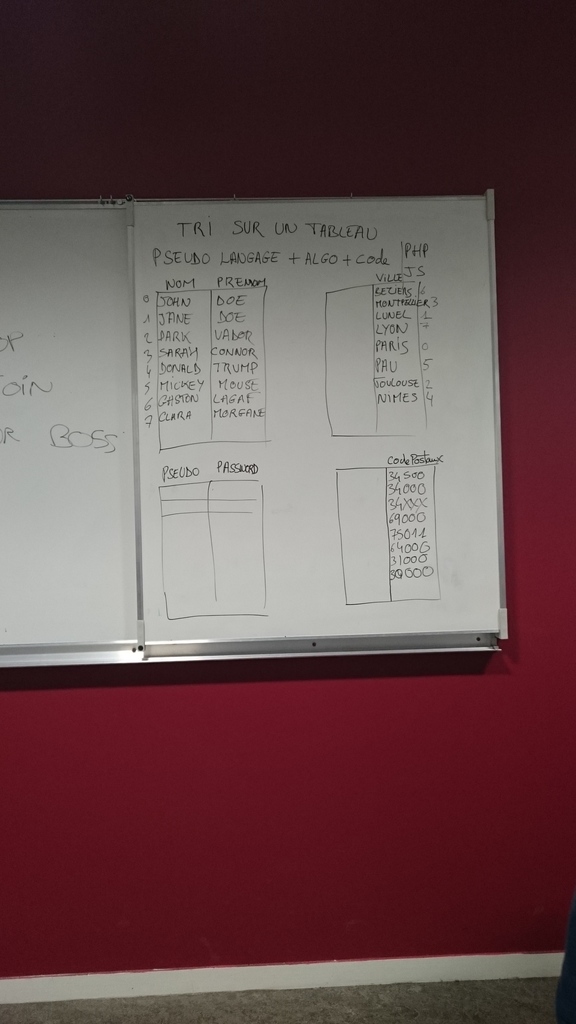 OP
OIN
OR BOSS
TRI SUR UN TABLEAU
PSEUDO LANGAGE + ALGO + Code PHP
JS
NOM PRENOM
0 JOHN DOE
1 JANE DOE
2 DARK VADOR
3 SARAH CONNOR
4 DONALD TRUMP
5 MICKEY MOUSE
6 GASTON LAGAF
7 CLARA MORGANE
VILLE
BEZIERS 6
MONTPELLIER 3
LUNEL 1
LYON 7
PARIS 0
PAU 5
TOULOUSE 2
NIMES 4
PSEUDO PASSWORD
Code Postaux
34500
34000
34XXX
69000
75011
64000
31000
30000